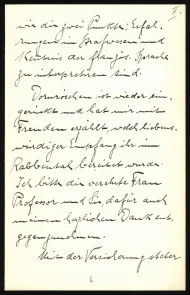 wie die zwei Punkte: Erfah-
rungen im Strafwesen und
Kenntnis der französ. Sprache
zu interpretieren sind.
ist wieder ein-
gerückt und hat mir mit
Freuden erzählt, welch liebens-
würdiger Empfang ihr im
Rabbental bereitet wurde.
Ich bitte die verehrte Frau
Professor und Sie, dafür auch
meinen herzlichen Dank ent-
gegenzunehmen.
Mit der Versicherung steter